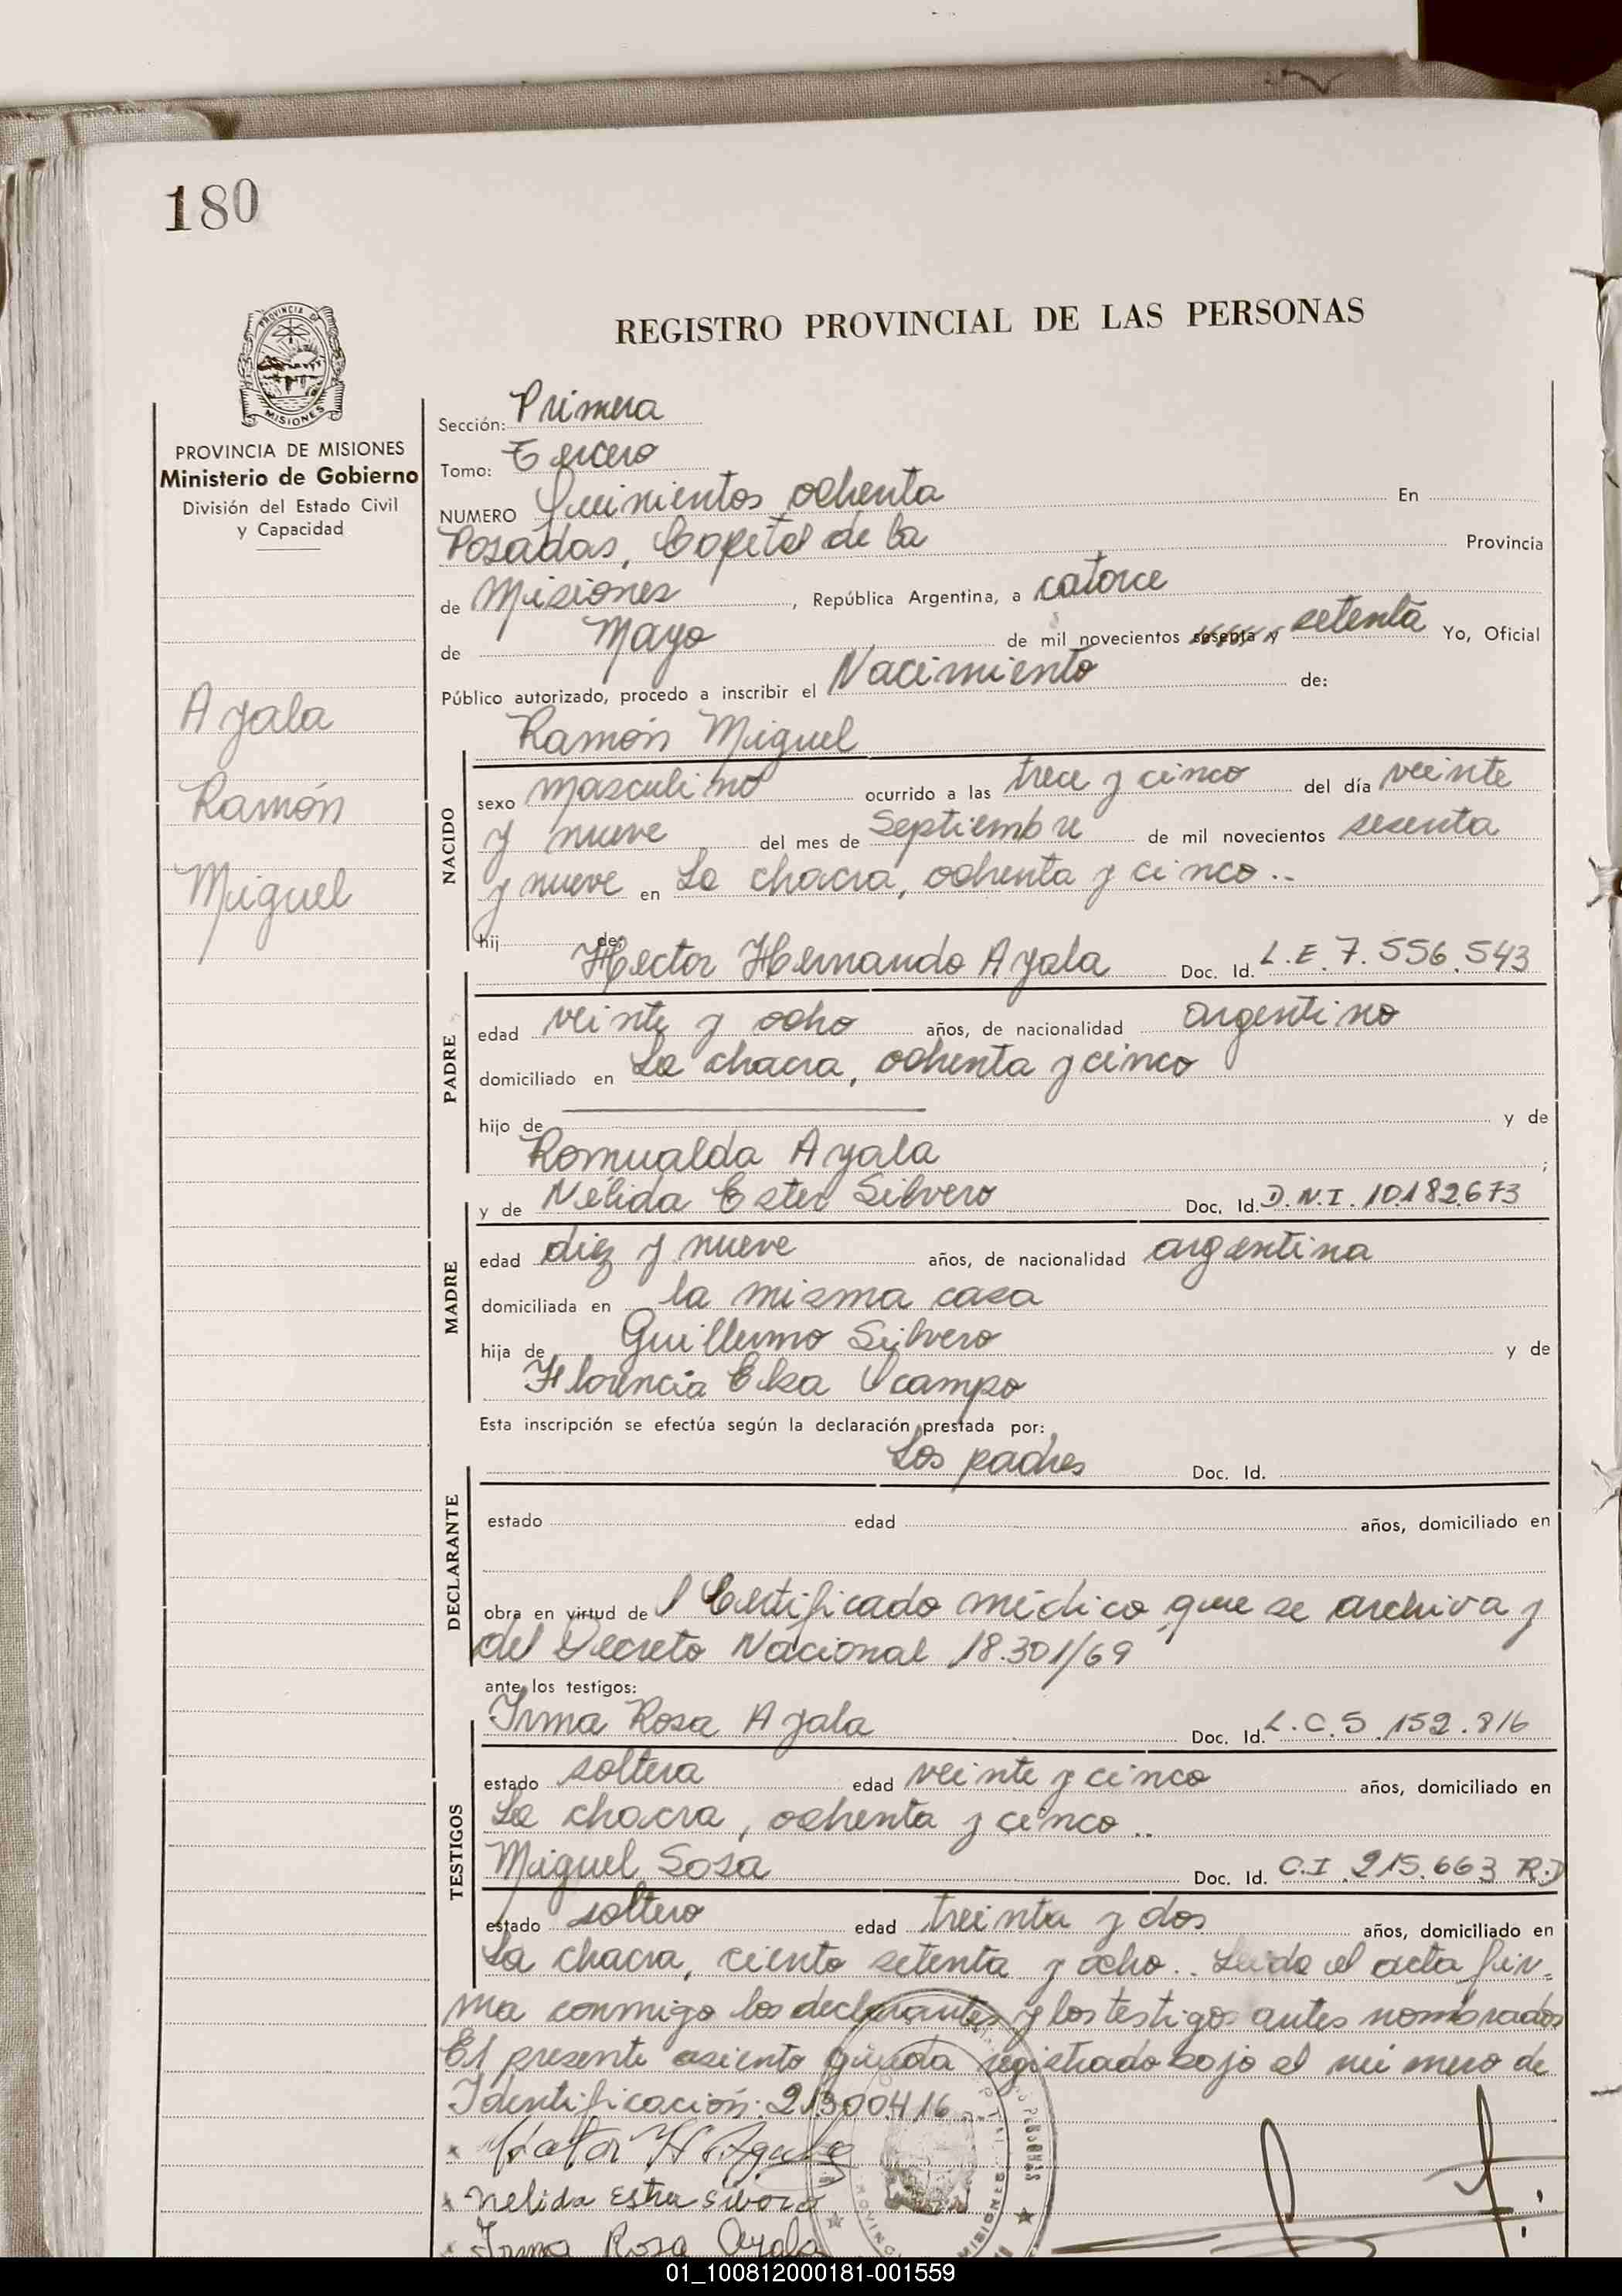 180
REGISTRO PROVINCIAL DE LAS PERSONAS
PROVINCIA DE MISIONES
Ministerio de Gobierno
División del Estado Civil
y Capacidad
Ayala
Ramón
Miguel
Sección: Primera
Tomo: Tercero
NUMERO Quinientos ochenta En
Posadas, Capital de la Provincia
de Misiones, República Argentina, a catorce
de Mayo de mil novecientos sesenta y setenta Yo, Oficial
Público autorizado, procedo a inscribir el Nacimiento de:
Ramón Miguel
NACIDO
sexo masculino ocurrido a las trece y cinco del día veinte
y nueve del mes de Septiembre de mil novecientos sesenta
y nueve en La chacra, ochenta y cinco..
hij de:
Hector Hernando Ayala Doc. Id. L.E. 7.556.543
PADRE
edad veinte y ocho años, de nacionalidad argentino
domiciliado en La chacra, ochenta y cinco
hijo de y de
Romualda Ayala ;
y de Nélida Ester Silvero Doc. Id. D.N.I. 10.182.673
MADRE
edad diez y nueve años, de nacionalidad argentina
domiciliada en la misma casa
hija de Guillermo Silvero y de
Florencia Elsa Ocampo
Esta inscripción se efectúa según la declaración prestada por:
Los padres Doc. Id.
DECLARANTE
estado edad años, domiciliado en
obra en virtud de l Certificado médico que se archiva y
del Decreto Nacional 18.301/69
ante los testigos:
TESTIGOS
Irma Rosa Ayala Doc. Id. L.C. 5.152.816
estado soltera edad veinte y cinco años, domiciliado en
La chacra, ochenta y cinco..
Miguel Sosa Doc. Id. C.I. 215.663 R.P
estado soltero edad treinta y dos años, domiciliado en
La chacra, ciento setenta y ocho.. Leida el acta fir=
ma conmigo los declarantes y los testigos antes nombrados
El presente asiento queda registrado bajo el número de
Identificación: 21.300.416
Nelida Ester
Irma Rosa Ayala
01_100812000181-001559